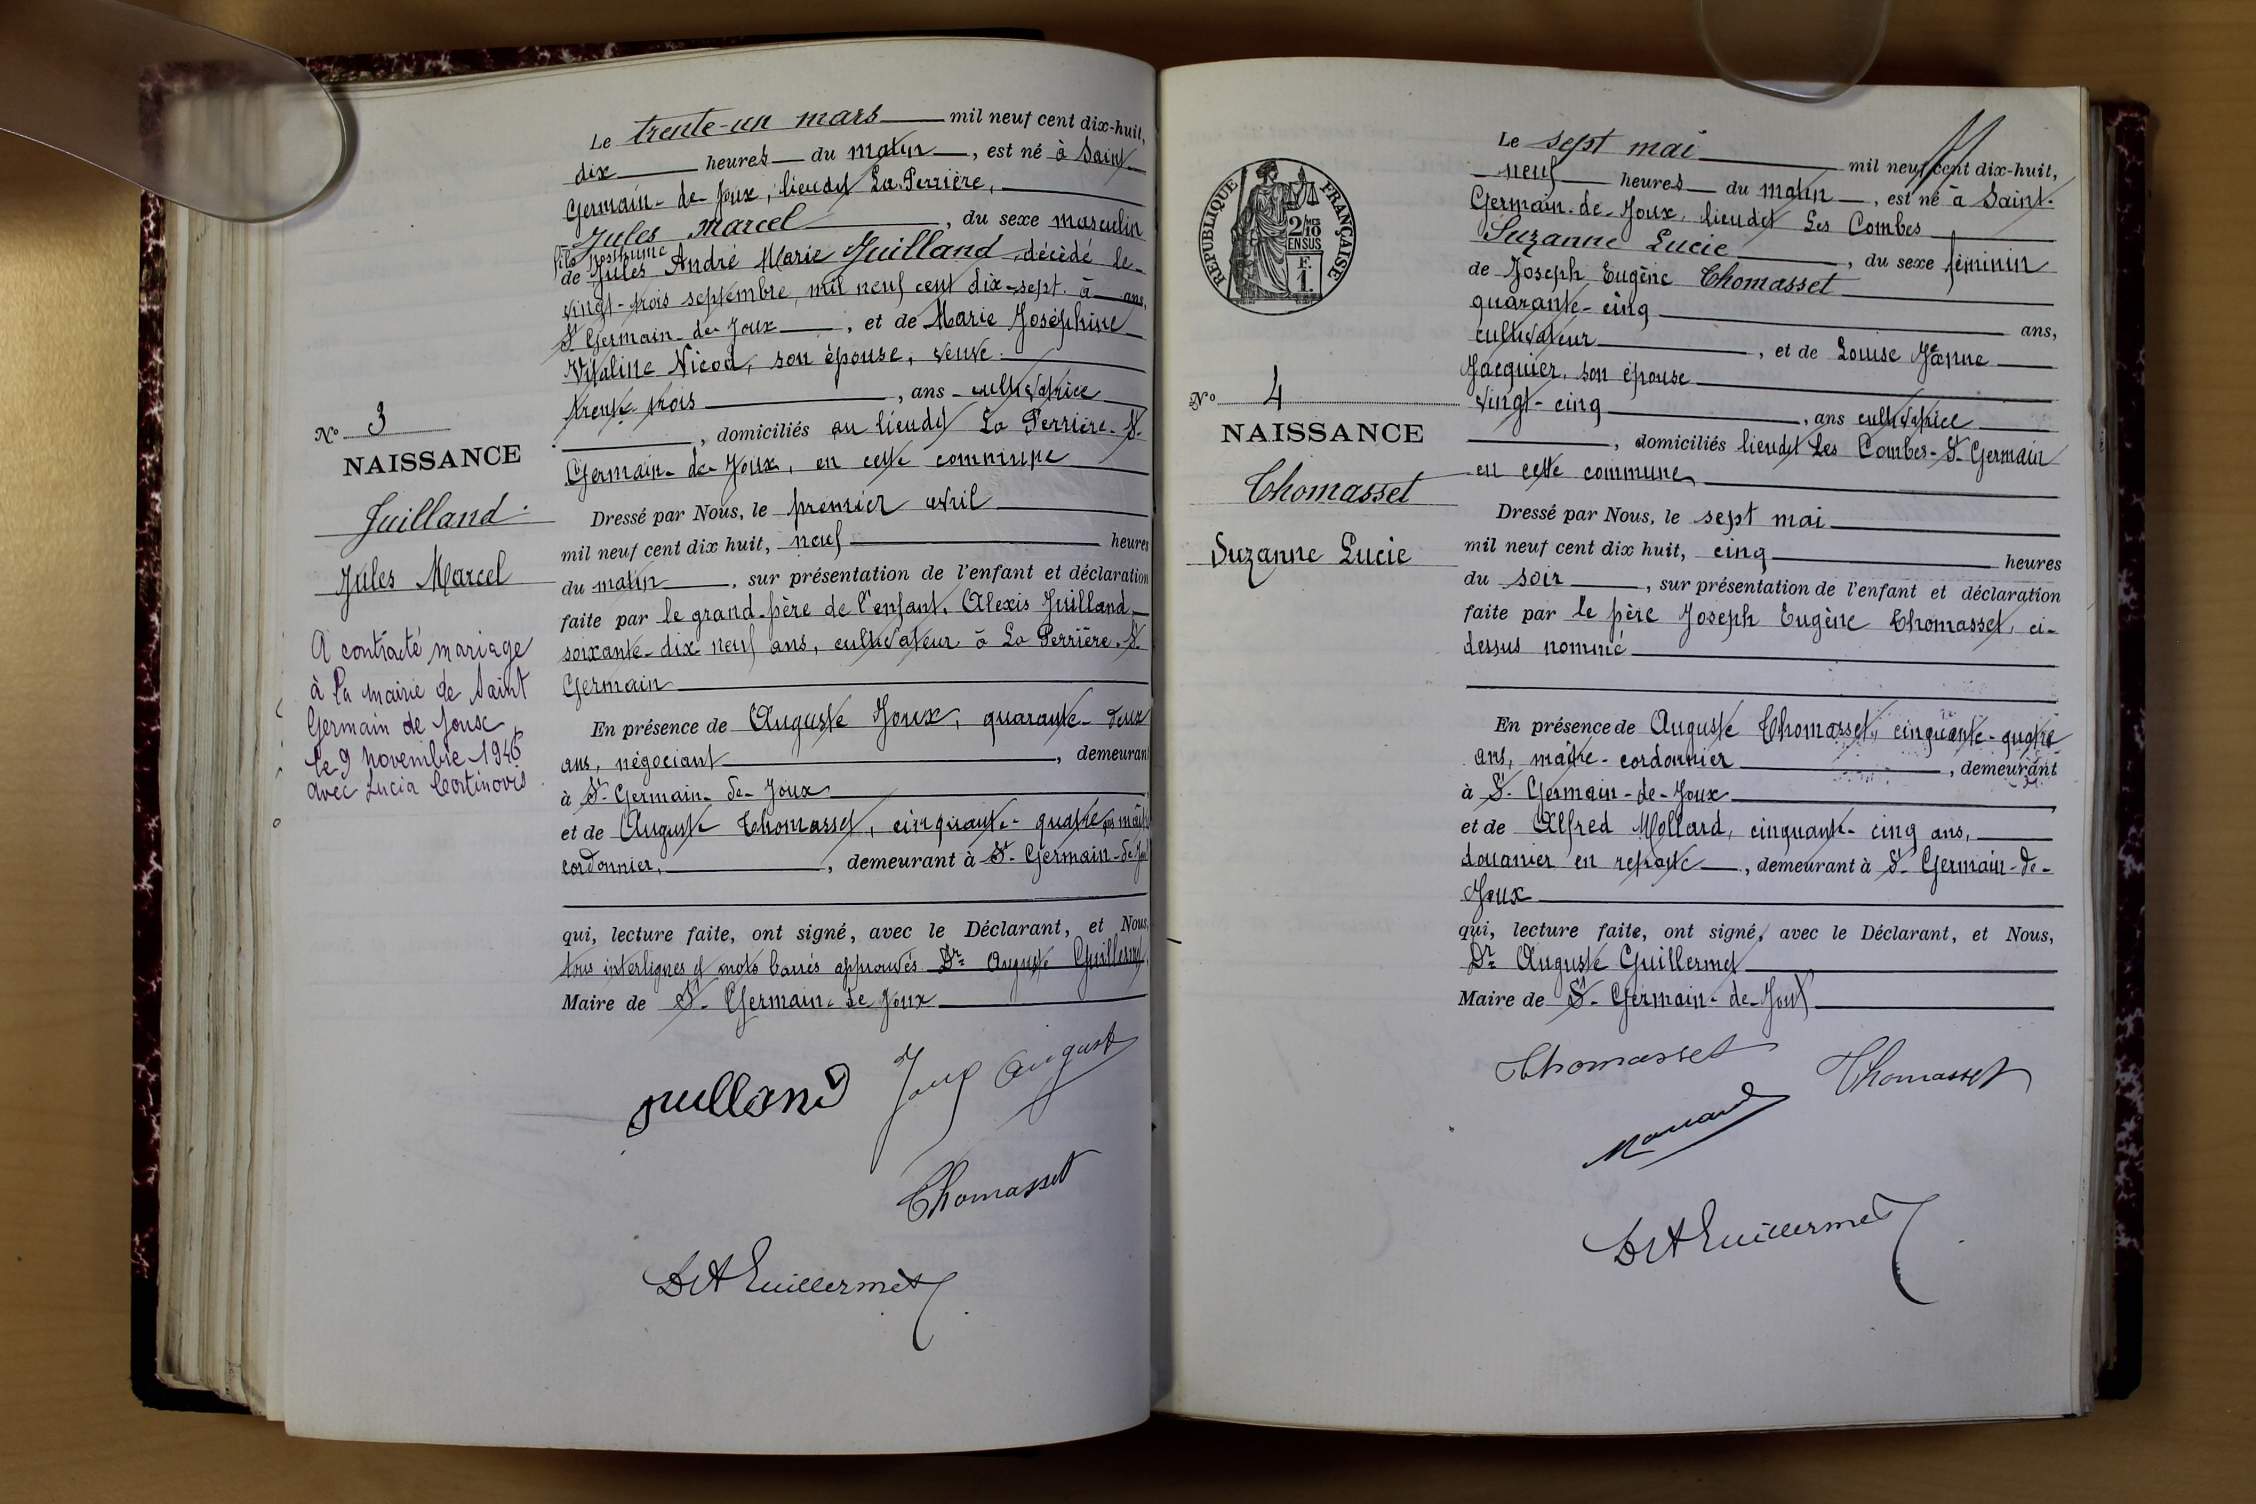 Le trente-un mars mil neuf cent dix-huit,
dix heures du matin, est né à Saint
Germain-de-Joux, lieudit La Perrière,
Jules Marcel, du sexe masculin
fils posthume
de Jules André Marie Juilland, décédé le
vingt-trois septembre, mil neuf cent dix-sept à ans,
St Germain-de-Joux, et de Marie Joséphine
Vitaline Nicod, son épouse, veuve
trente-trois, ans cultivatrice
, domiciliés au lieudit La Perrière-St
Germain-de-Joux, en cette commune
Dressé par Nous, le premier avril
mil neuf cent dix huit, neuf heures
du matin, sur présentation de l'enfant et déclaration
faite par le grand-père de l'enfant, Alexis Juilland
soixante-dix neuf ans, cultivateur à La Perrière-St
Germain
En présence de Auguste Joux, quarante-deux
ans, négociant, demeurant
à St-Germain-de-Joux
et de Auguste Thomasset, cinquante-quatre ans maître
cordonnier, demeurant à St-Germain-de-Joux
qui, lecture faite, ont signé, avec le Déclarant, et Nous,
tous interlignes et mots barrés approuvés Dr Auguste Guillermet,
Maire de St-Germain-de Joux
Juilland Joux August
Thomasset
Dr A Guillermet
No 3
NAISSANCE
Juilland
Jules Marcel
A contracté mariage
à la mairie de Saint
Germain de Joux
le 9 novembre 1946
avec Lucia Cortinovis
RÉPUBLIQUE FRANÇAISE
2/10
EN SUS
F.
1.
No 4
NAISSANCE
Thomasset
Suzanne Lucie
Le sept mai mil neuf cent dix-huit,
neuf heures du matin, est né à Saint-
Germain-de-Joux, lieudit Les Combes
Suzanne Lucie, du sexe féminin
de Joseph Eugène Thomasset
quarante-cinq ans,
cultivateur, et de Louise Jeanne
Jacquier, son épouse
vingt-cinq, ans cultivatrice
, domiciliés lieudit Les Combes-St Germain
en cette commune,
Dressé par Nous, le sept mai
mil neuf cent dix huit, cinq heures
du soir, sur présentation de l'enfant et déclaration
faite par le père Joseph Eugène Thomasset, ci-
dessus nommé
En présence de Auguste Thomasset, cinquante-quatre
ans, maître-cordonnier, demeurant
à St-Germain-de-Joux
et de Alfred Mollard, cinquante-cinq ans,
douanier en retraite, demeurant à St-Germain-de-
Joux
qui, lecture faite, ont signé, avec le Déclarant, et Nous,
Dr Auguste Guillermet
Maire de St-Germain-de-Joux
Thomasset Thomasset
Dr A Guillermet